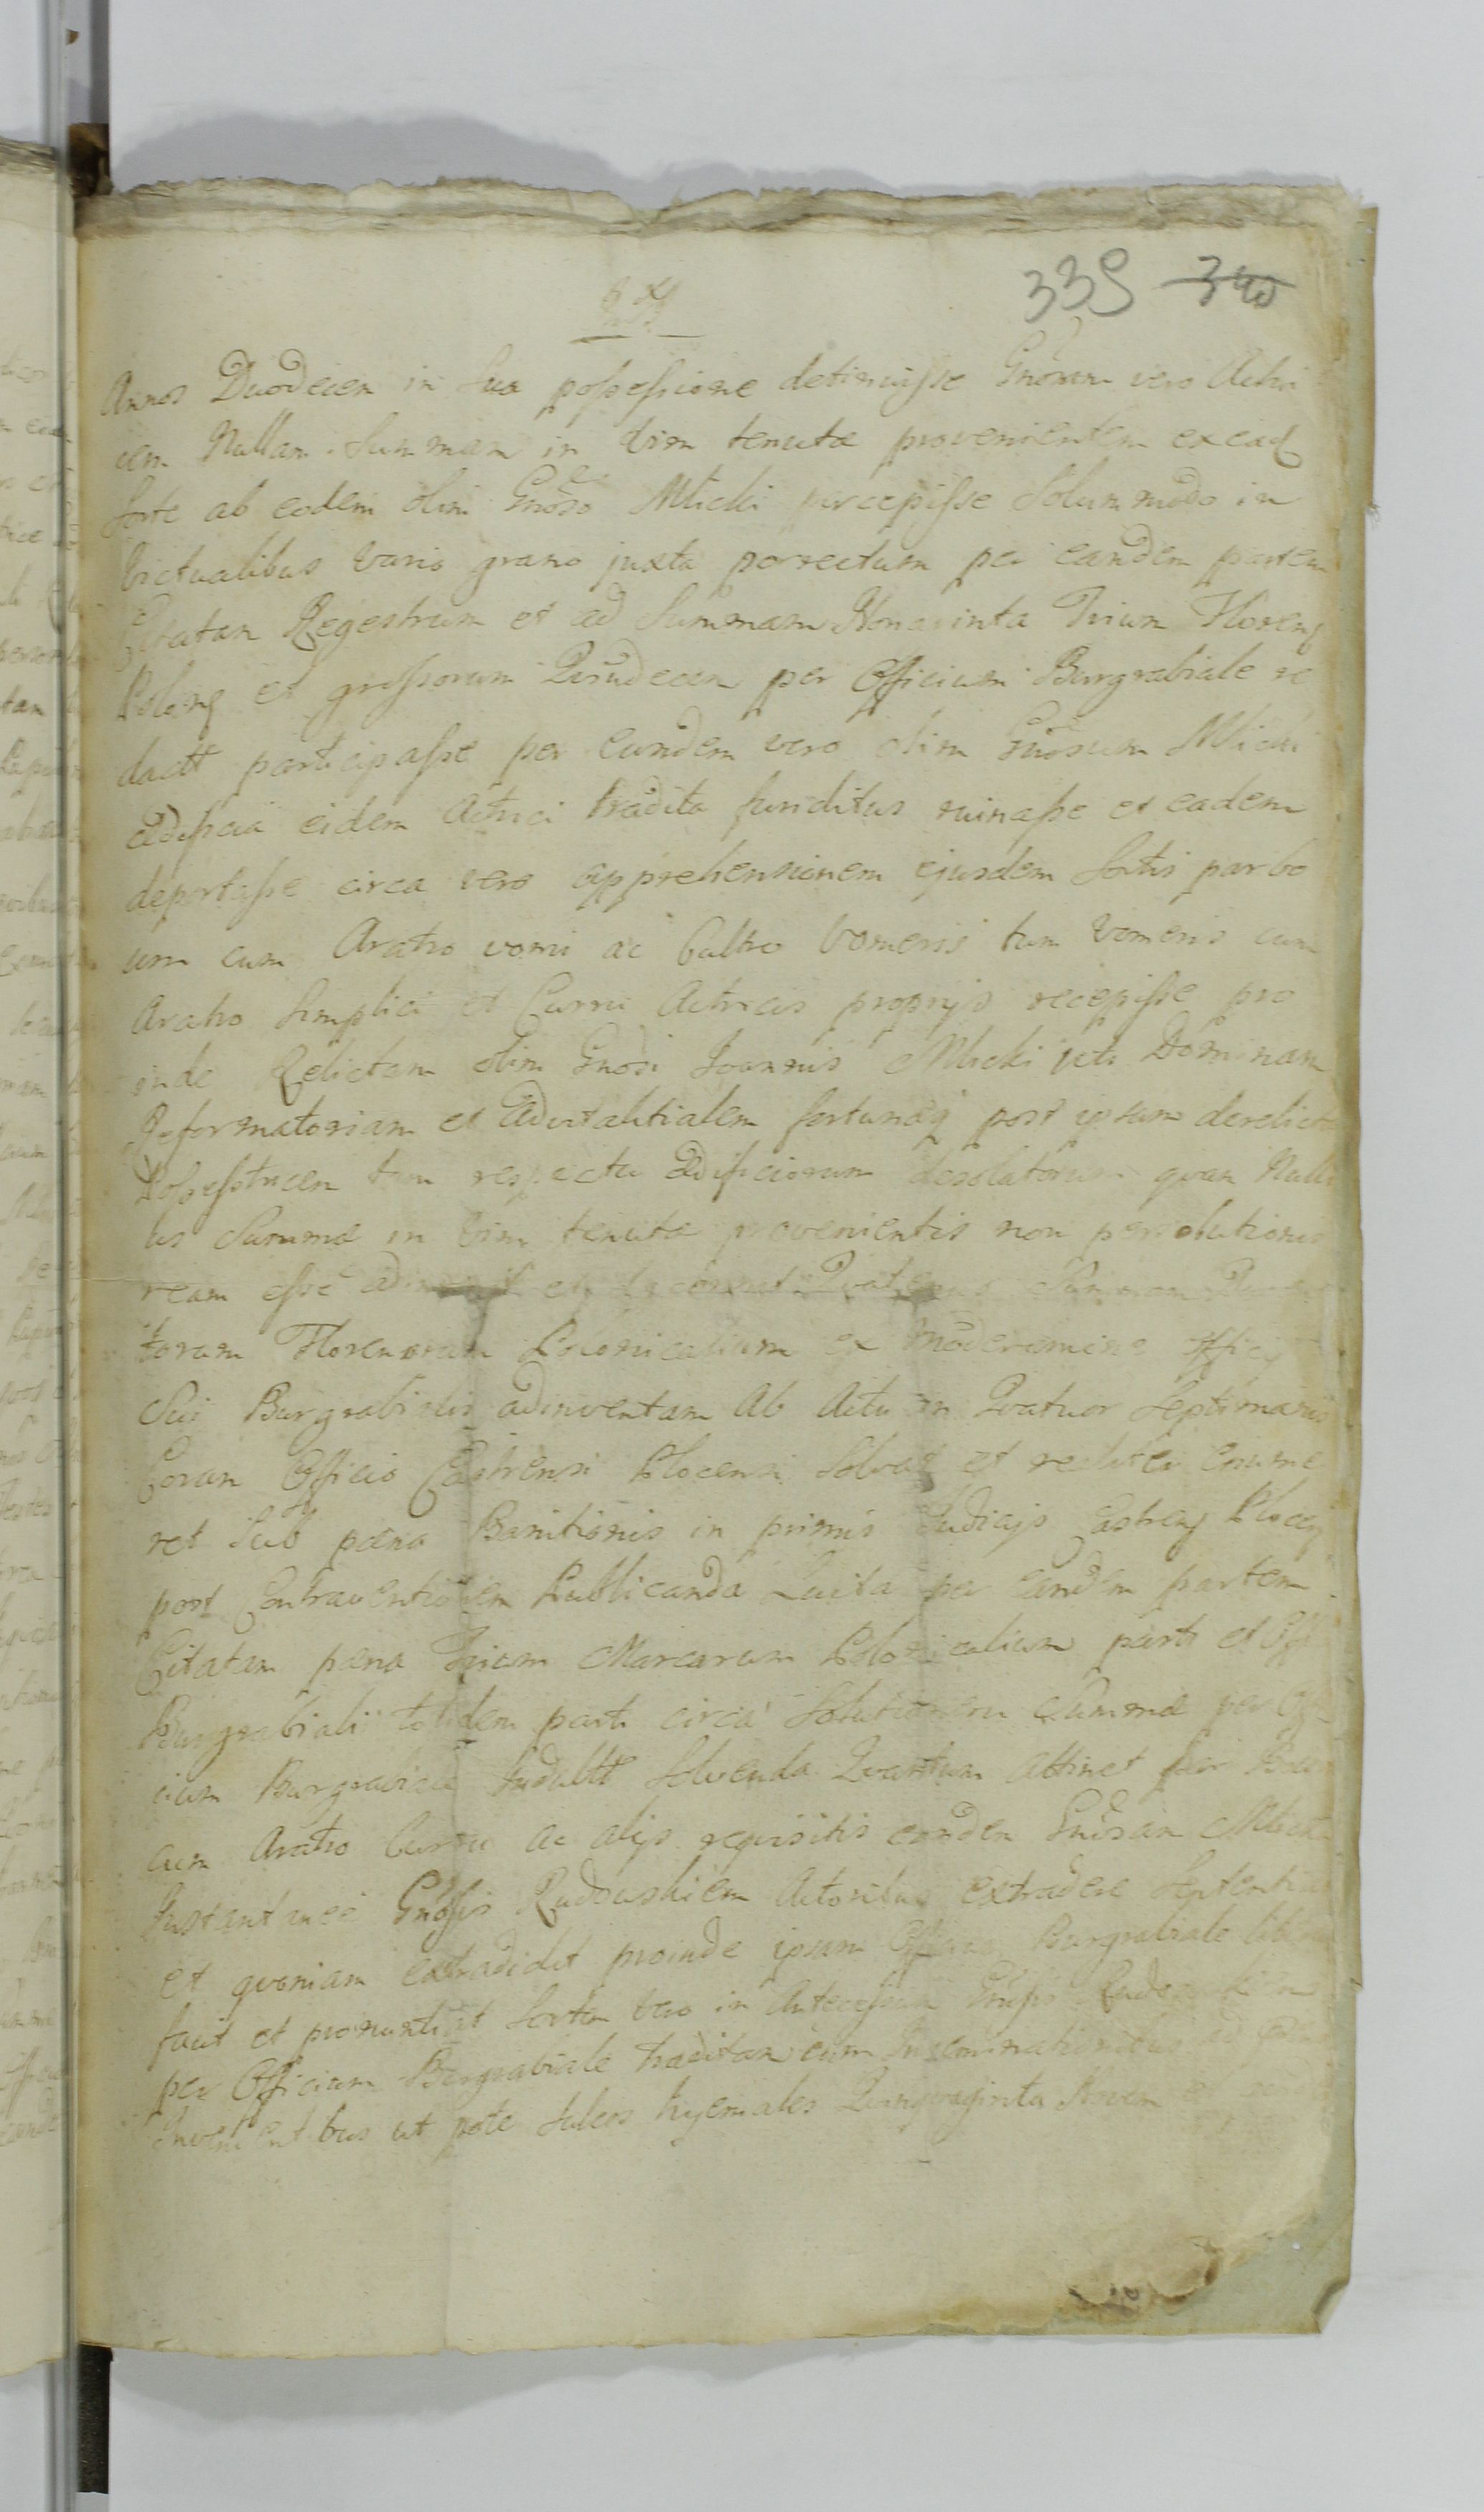 339 340
Annos Duodecem in sua possessione detinuisse Gnosam vero Actri
cem Nullam Summam in vim tenutæ provenientem ex ead
sorte ab eodem olim Gnoso Mlicki percepisse Solummodo in
Victualibus vario grano juxta porrectum per eandem partem
Citatam Regestrum et ad Summam Nonaginta Trium Floreng
Polong et grossorum Quindecem per Officium Burgrabiale re
dactt participasse per eundem vero olim Gnosum Mlicki
ædificia eidem Actrici tradita funditus ruinasse et eadem
deportasse circa vero apprehensionem ejusdem Sortis par bo
um cum Aratro vomi ac Cultro Vomeris tum Vomeris cum
Aratro Simplici et Curru Actricis proprijs recepisse pro
inde Relictam olim Gnosi Joannis Mlicki uti Dominam
Reformatoriam et Advitalitialem fortunaq post ipsum derelicta
Possestricem tum respectu ædificiorum desolatorum quam Nulli
us Summæ in Vim tenutæ provenientis non persolutionis
ream esse et Quatenus Summam
torum Florenorum Polonicalium ex moderamine Officij
Sui Burgrabialis adinventam Ab Actu in Quatuor Septimanis
Coram Officio Castrensi Plocensi Solvat et realiter enume
ret Sub pæna Banitionis in primis Judicijs Castreng Plocen
post Contraventionem Publicanda Luita per eandem partem
Citatam pæna Trium Marcarum Polonicalium parti et Offi
Burgrabiali totidem parti circa Solutionem Summæ per Offi
cium Burgrabiale Solvenda Quantum attinet par Boum
cum Aratro Curru ac alijs requisitis eandem Gnosam Mlicka
Instantanee Gnosis Rudowskiem Actoribus extradere
et quoniam extradidit proinde ipsam Officium Burgrabiale
facit et pronuntiat Sortem vero in Antecessum Gnosis
per Officium Burgrabiale traditam cum Inseminationibus ad
ut pote Sulcos hyemales Quinquaginta Novem et